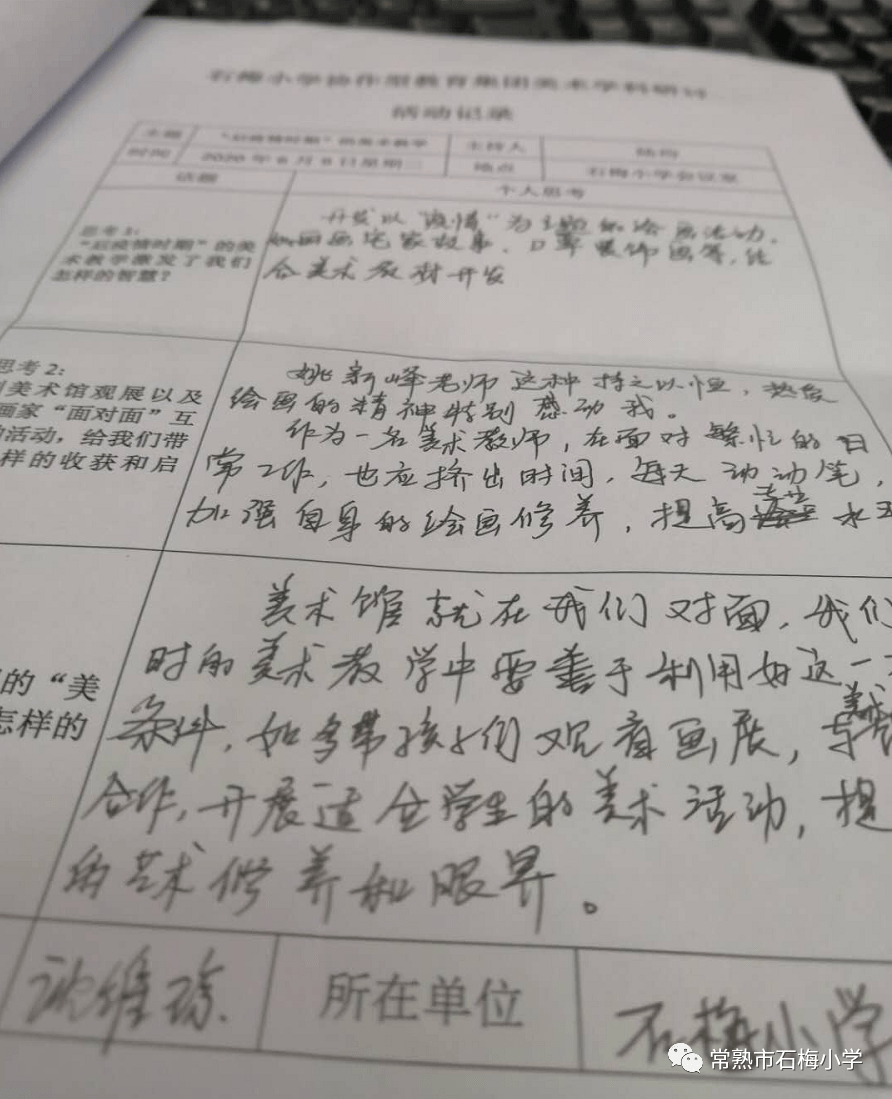 石梅小学协作型教育集团美术学科研讨
活动记录
主题 “后疫情时期”的美术教学 主持人
时间 2020年6月9日星期二 地点 石梅小学会议室
话题 个人思考
思考1:
“后疫情时期”的美
术教学激发了我们
怎样的智慧?
开发以“疫情”为主题的绘画活动,
如画画宅家故事、口罩装饰画等,结
合美术教材开发
思考2:
美术馆观展以及
画家“面对面”互
活动,给我们带
样的收获和启
姚新峰老师这种持之以恒,热爱
绘画的精神特别感动我。
作为一名美术教师,在面对繁忙的日
常工作,也应挤出时间,每天动动笔,
加强自身的绘画修养,提高专业水
的“美
怎样的
美术馆就在我们对面,我们
时的美术教学中要善于利用好这一
条件,如多带孩子们观看画展,与
合作,开展适合学生的美术活动,提
的艺术修养和眼界。
沈维琼 所在单位 石梅小学
常熟市石梅小学